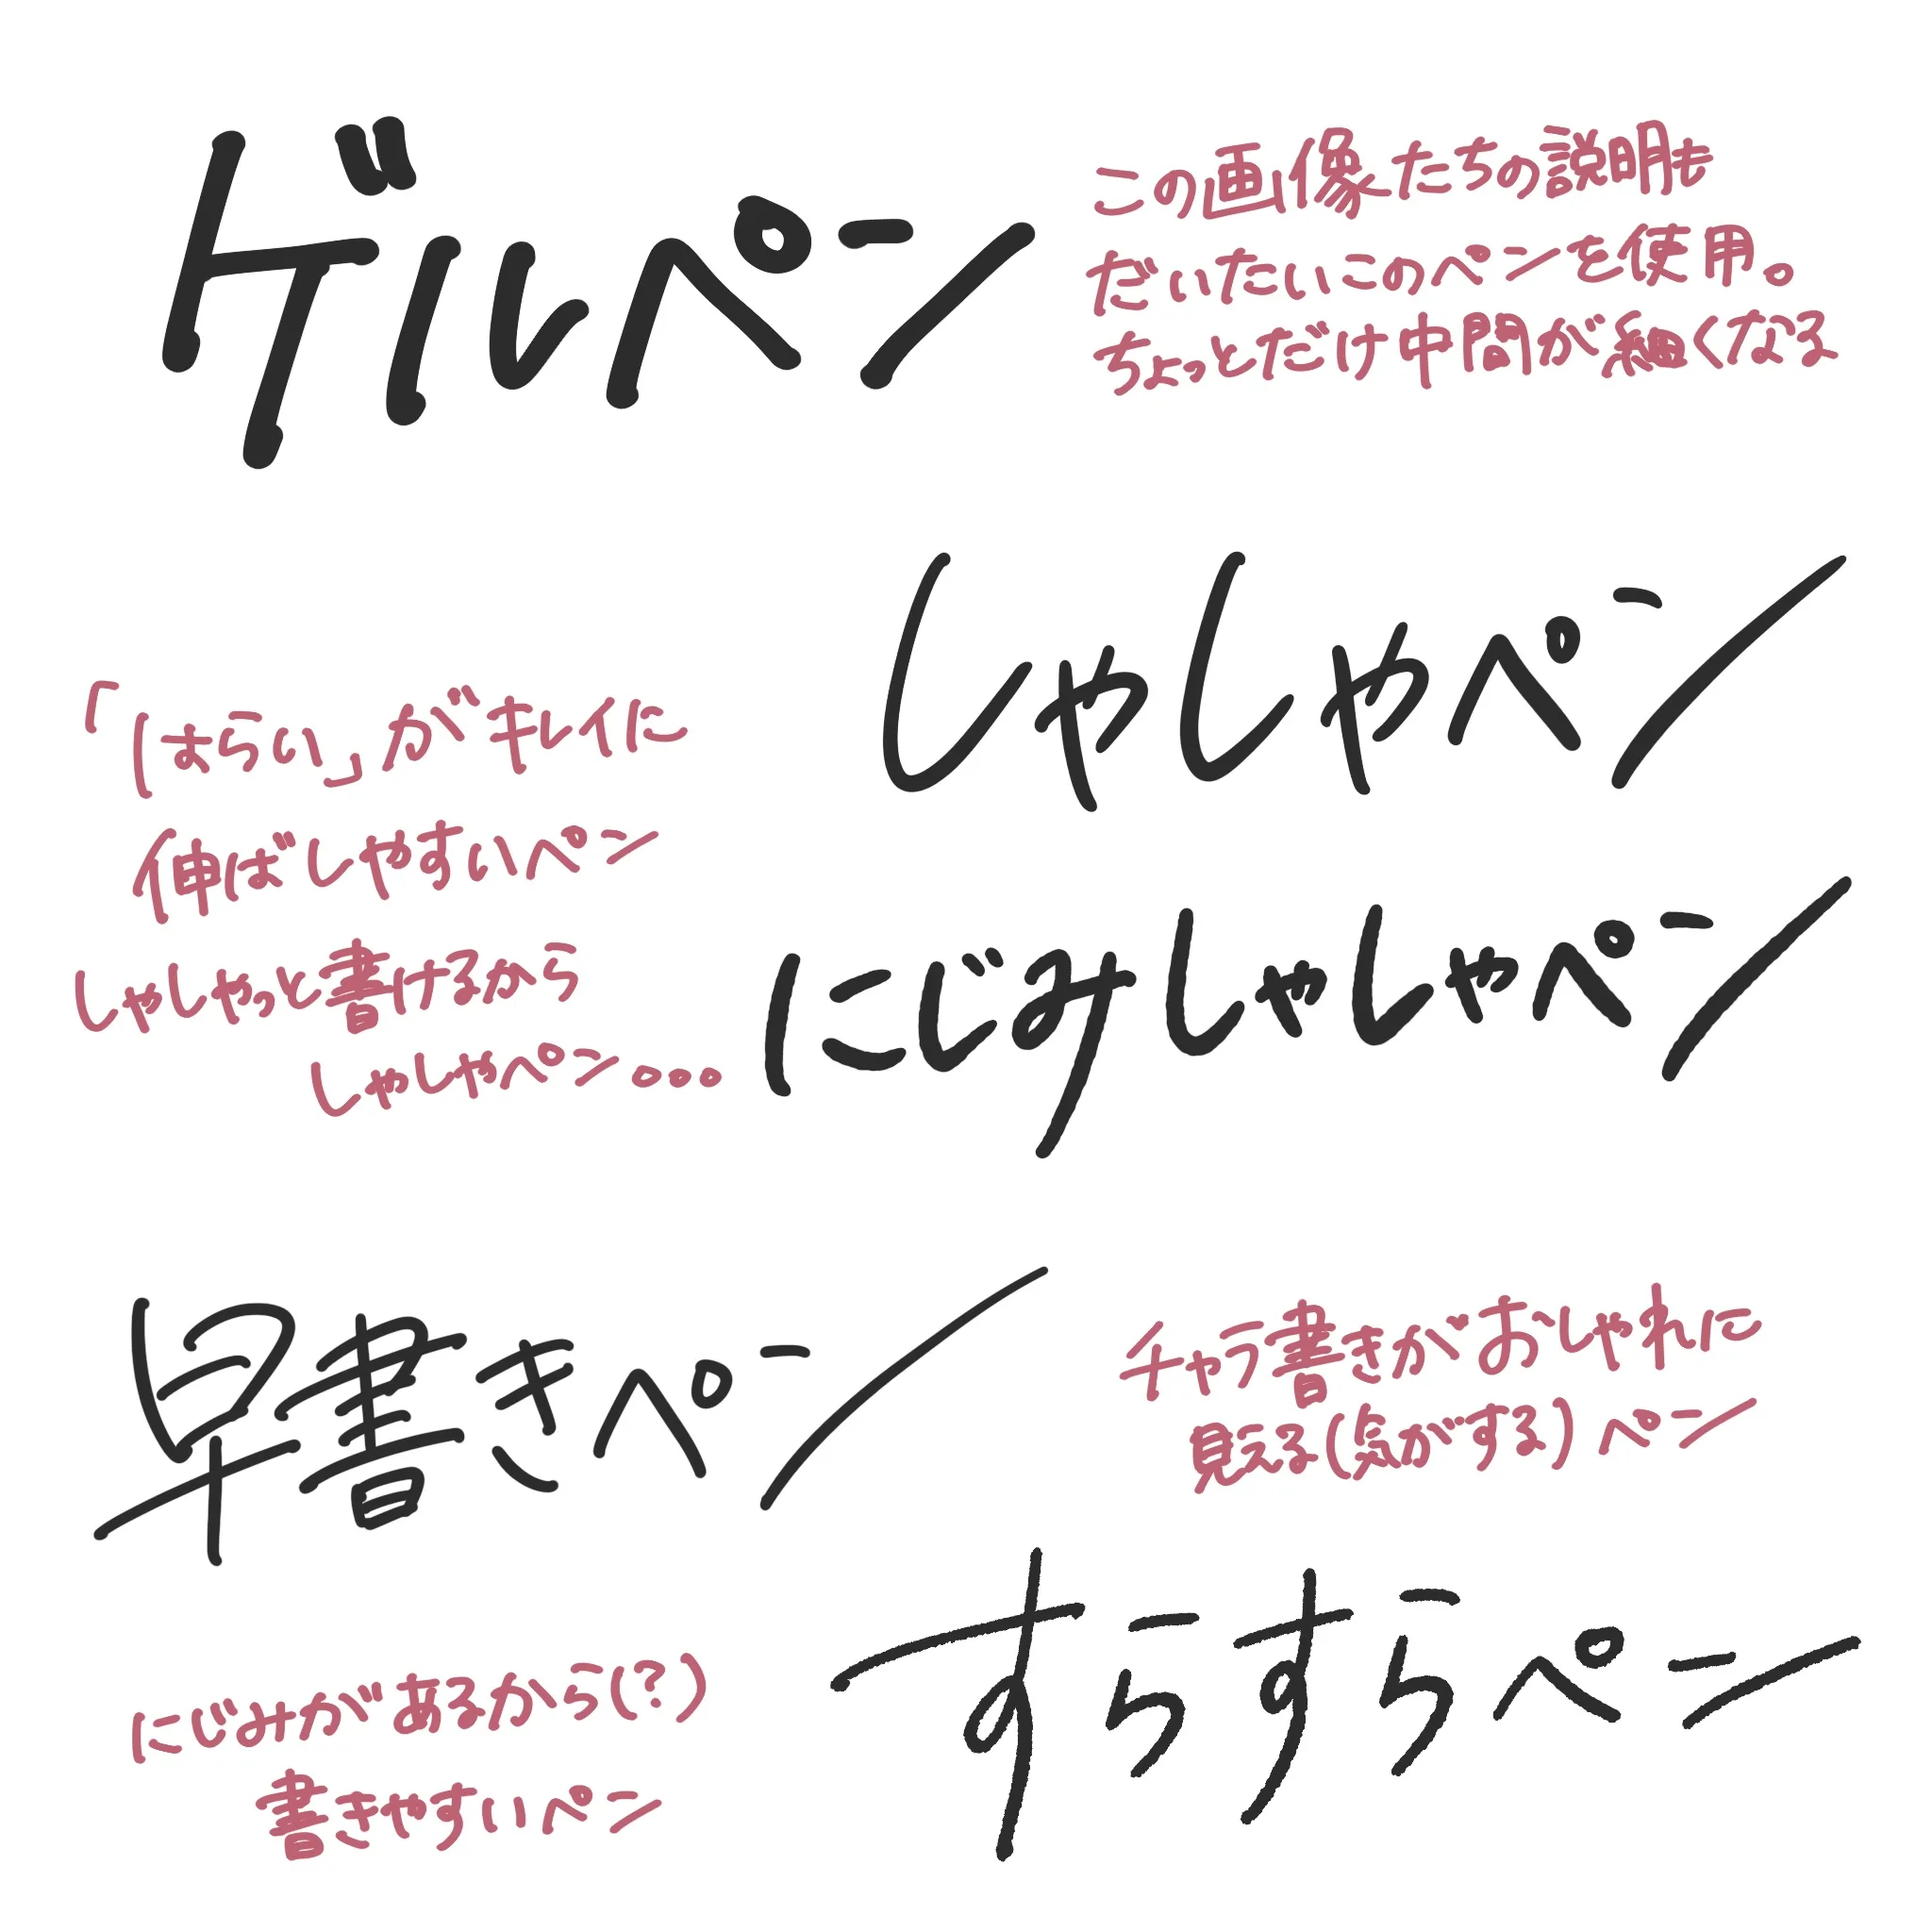 ゲルペン
この画像たちの説明も
だいたいこのペンを使用。
ちょっとだけ中間が細くなる
しゃしゃペン
「はらい」がキレイに
伸ばしやすいペン
しゃしゃっと書けるから
しゃしゃペン...
にじみしゃしゃペン
早書きペン
チャラ書きがおしゃれに
見える(気がする)ペン
すらすらペン
にじみがあるから(?)
書きやすいペン